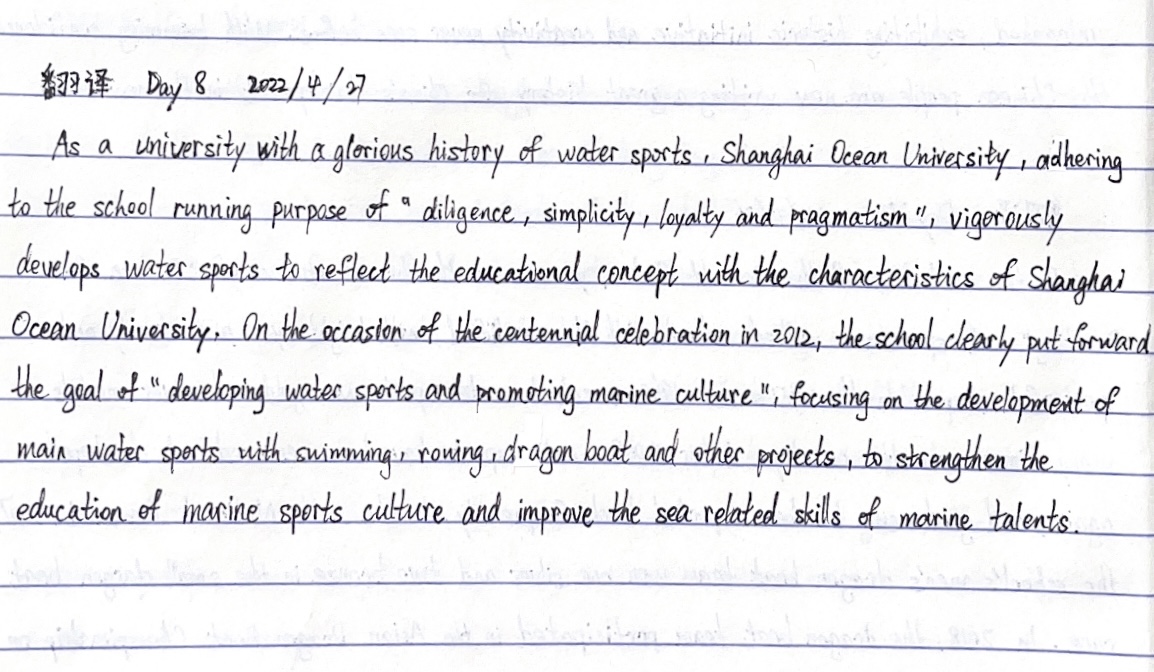 翻译 Day 8 2022/4/27
As a university with a glorious history of water sports, Shanghai Ocean University, adhering
to the school running purpose of "diligence, simplicity, loyalty and pragmatism", vigorously
develops water sports to reflect the educational concept with the characteristics of Shanghai
Ocean University. On the occasion of the centennial celebration in 2012, the school clearly put forward
the goal of "developing water sports and promoting marine culture", focusing on the development of
main water sports with swimming, rowing, dragon boat and other projects, to strengthen the
education of marine sports culture and improve the sea related skills of marine talents.